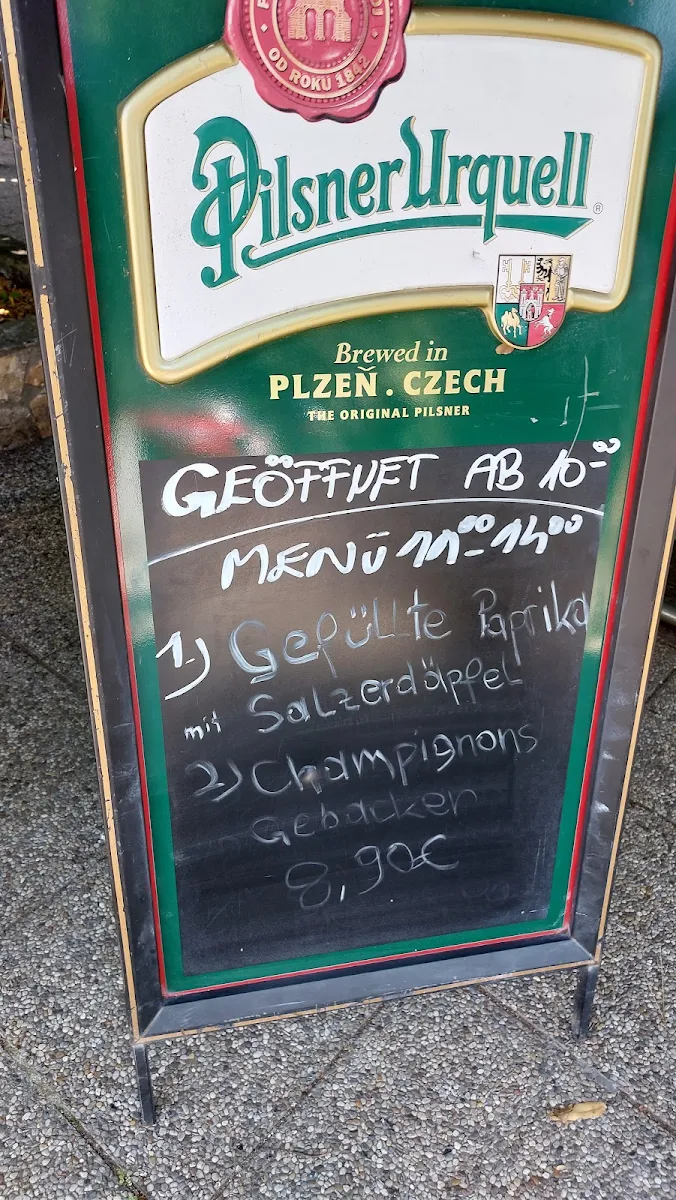 OD ROKU 1842
Pilsner Urquell ®
Brewed in
PLZEŇ . CZECH
THE ORIGINAL PILSNER
GEÖFFNET AB 10-00
MENÜ 11 00 - 14 00
1.) Gefüllte Paprika
mit Salzerdäpfel
2) Champignons
Gebacken
8,90€